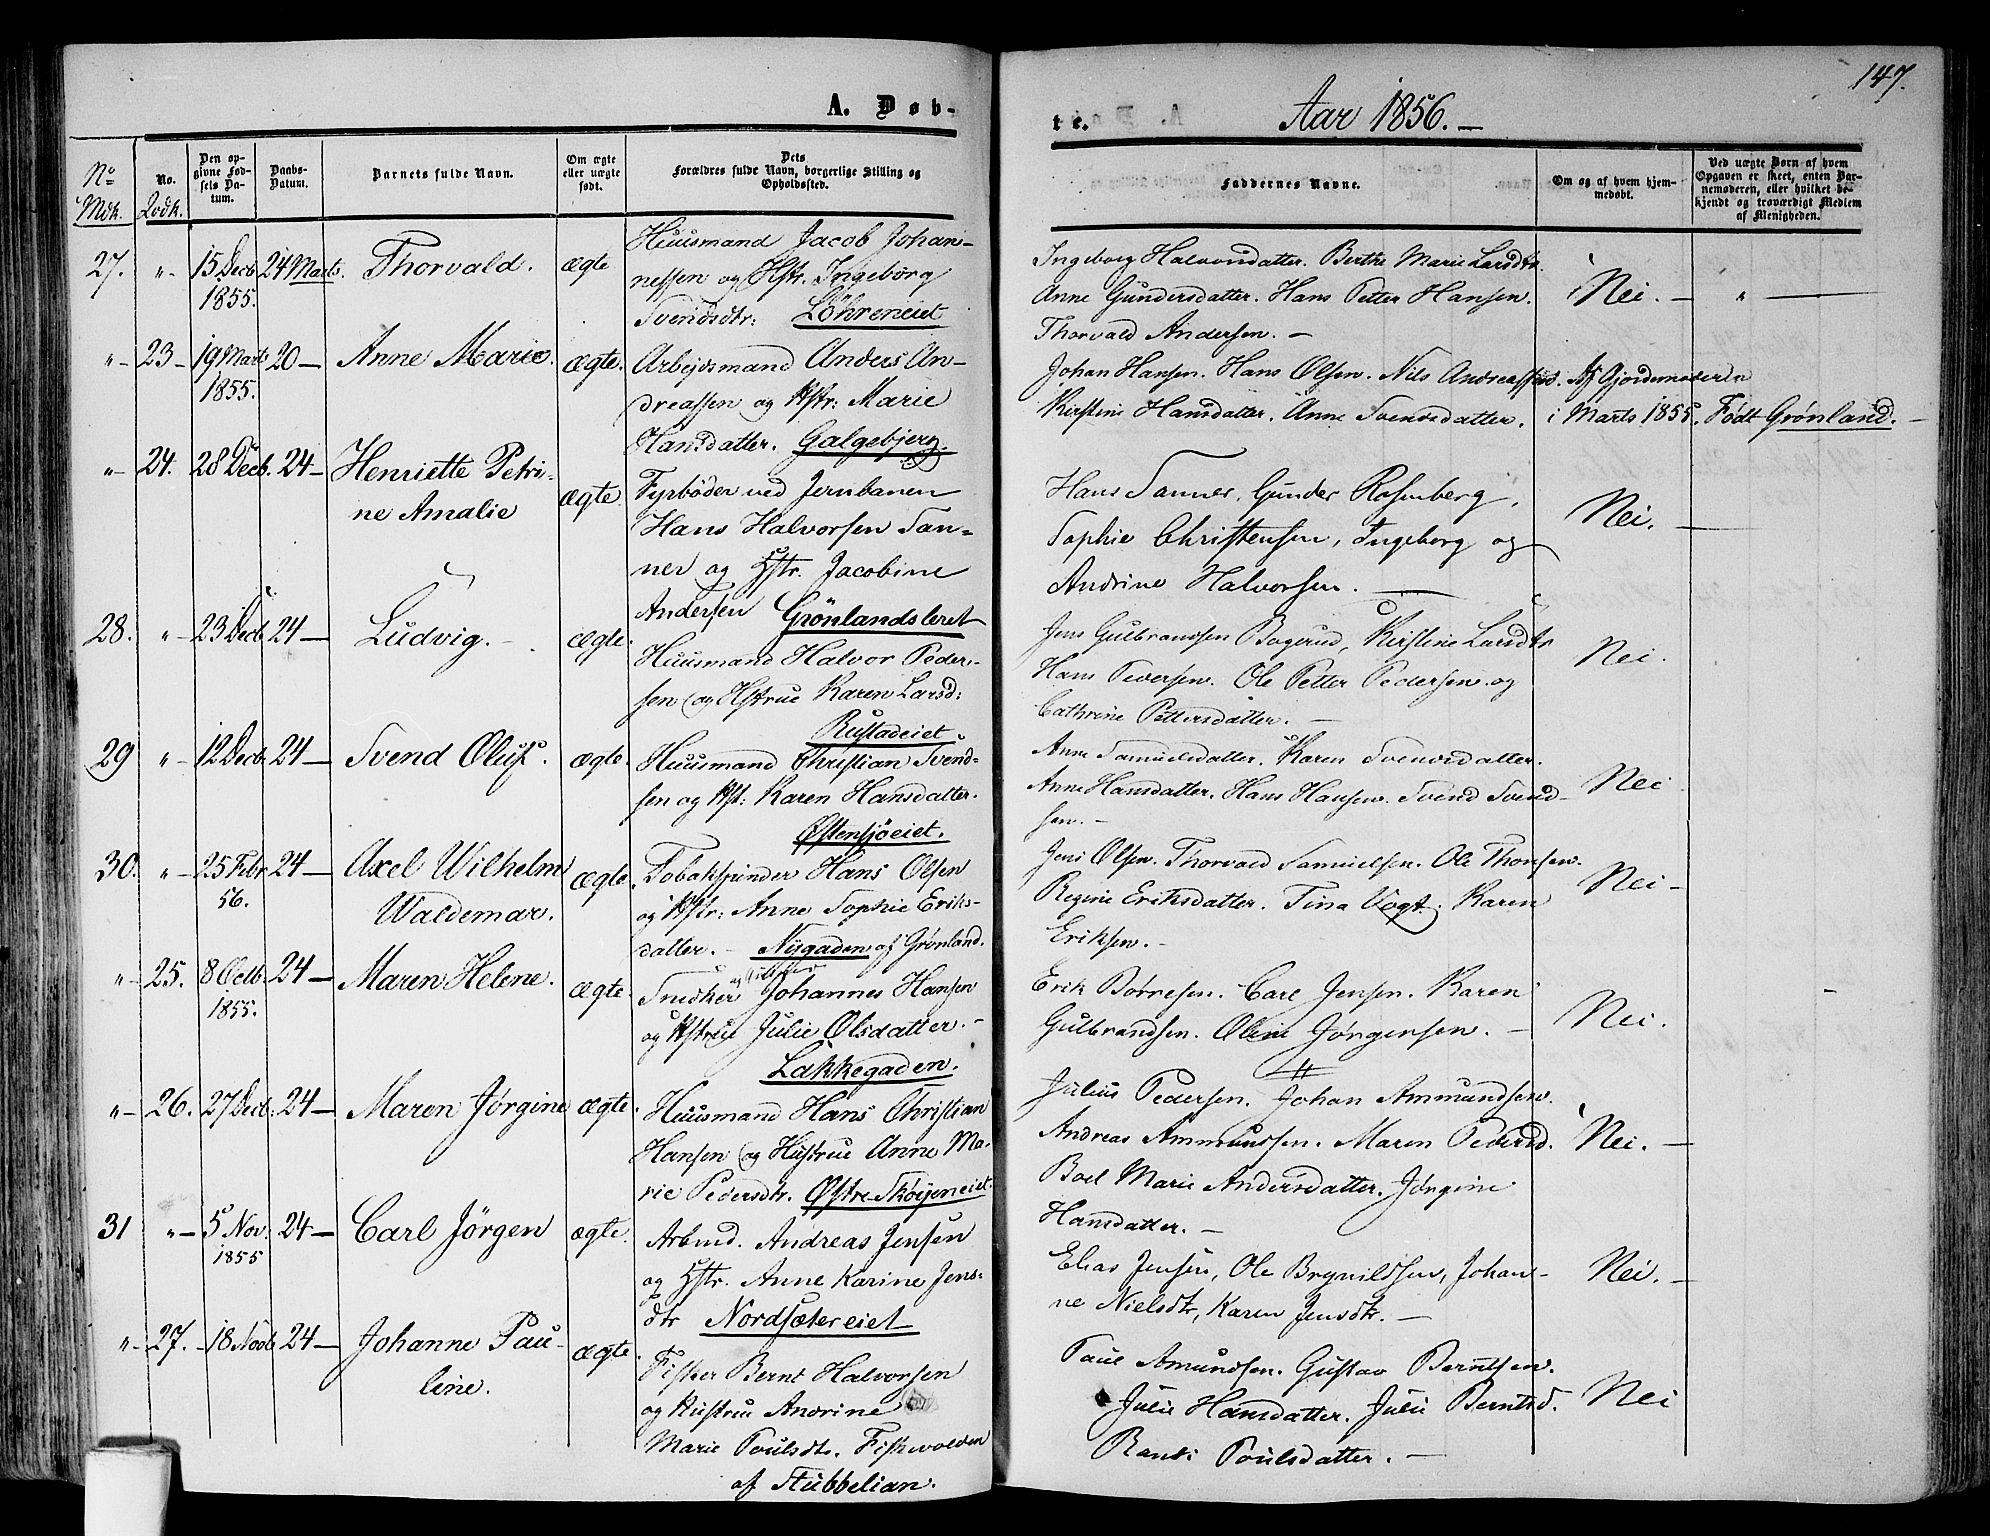 147.
A. Døb-
te.
Aar 1856.—
No Mdk.
No. Qvdk.
Den opgivne Fødsels Datum.
Daabs-Datum.
Barnets fulde Navn.
Om ægte eller uægte født.
Dets Forældres fulde Navn, borgerlige Stilling og Opholdssted.
Faddernes Navne.
Om og af hvem hjemmedøbt.
Ved uægte Børn af hvem Opgaven er skeet, enten Barnemoderen, eller hvilket bekjendt og troværdigt Medlem af Menigheden.
27. " 15 Decb 1855. 24 Marts. Thorvald. ægte
Huusmand Jacob Johan-
nessen og Hstr. Ingeborg
Svendsdtr: Löhreneiet
Ingeborg Halvorsdatter. Berthe Marie Larsdtr.
Anne Gundersdatter. Hans Petter Hansen.
Thorvald Andersen. —
Nei. — " —
" 23 — 19 Marts 1855. 20 — Anne Marie. ægte.
Arbejdsmand Anders An-
dreassen og Hstr: Marie
Hansdatter. Galgebjerg.
Johan Hansen. Hans Olsen. Nils Andreassen.
Kirstine Hansdatter. Anne Svendsdatter.
Af Gjordemoderen
i Marts 1855. Født Grønland. —
" 24. 28 Decb. 24 — Henriette Petri-
ne Amalie ægte.
Fyrbøder ved Jernbanen
Hans Halvorsen San-
ner og Hstr. Jacobine
Andersen Grønlandsleret
Hans Sanner, Gunder Rosenberg,
Sophie Christensen, Ingeborg og
Andrine Halvorsen. —
Nei. —
28. " 23 Decb. 24 — Ludvig. — ægte.
Huusmand Halvor Peder-
sen og Hstrue Karen Larsd:
Rustadeiet
Jens Gulbrandsen Bogerud, Kirstine Larsdtr
Hans Pedersen. Ole Petter Pedersen og
Cathrine Pettersdatter. —
Nei.
29 " 12 Decb. 24 — Svend Oluf. ægte.
Huusmand Christian Svend-
sen og Hst: Karen Hansdatter.
Østensjøeiet.
Anne Samuelsdatter. Karen Svendsdatter.
Anne Hansdatter. Hans Hansen. Svend Svend-
sen. —
Nei
30. " 25 Febr 56. 24 — Axel Wilhelm
Waldemar. ægte.
Tobakspinder Hans Olsen
og Hstr: Anne Sophie Eriks-
datter. — Nygaden af Grønland.
Jens Olsen. Thorvald Samuelsen. Ole Thorsen.
Regine Eriksdatter. Tina Vogt. Karen
Eriksen. —
Nei —
" 25. 8 Octb. 1855. 24 — Maren Helene. ægte.
Snedker Johannes Hansen
og Hstrue Julie Olsdatter. —
Lakkegaden.
Erik Børresen. Carl Jensen. Karen
Gulbrandsen. Oline Jørgensen. —
Nei.
" 26. 27 Decb. 24 — Maren Jørgine ægte.
Huusmand Hans Christian
Hansen og Hustrue Anne Ma-
rie Pedersdtr. Østre Skøijeneiet.
Julius Pedersen. Johan Ammundsen.
Andreas Ammundsen. Maren Pedersd.
Boel Marie Andersdatter. Jørgine
Hansdatter. —
Nei. —
31 " 5 Nov. 1855 24 — Carl Jörgen ægte.
Arbmd. Andreas Jensen
og Hstr. Anne Karine Jens-
dtr Nordsætereiet
Elias Jensen, Ole Brynildsen, Johan-
ne Nielsdtr, Karen Jensdtr. —
Nei. —
" 27. 18 Novb 24 — Johanne Pau-
line. ægte.
Fisker Bernt Halvorsen
og Hustrue Andrine
Marie Poulsdtr. Fiskvolden
af Stubbelian.
Paul Amundsen. Gustav Berntsen.
Julie Hansdatter. Julie Berntsd.
Randi Poulsdatter. —
Nei